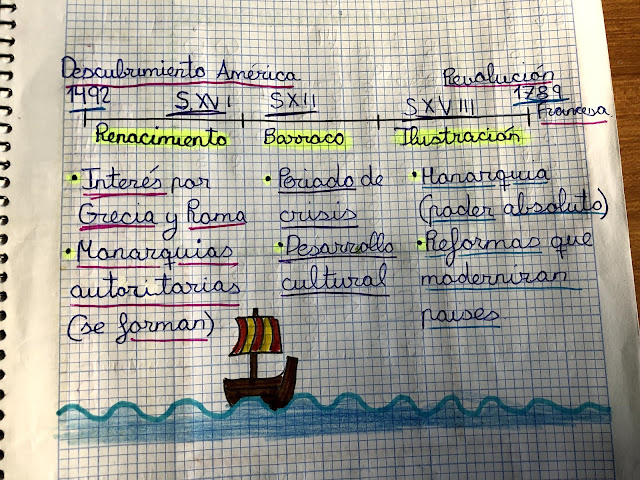 Descubrimiento América
Revolución
1492
S XVI
S XII
S XVIII
1789
Francesa
Renacimiento
Barroco
Ilustración
• Interés por
Grecia y Roma
• Monarquías
autoritarias
(se forman)
• Periodo de
crisis
• Desarrollo
cultural
• Monarquia
(poder absoluto)
• Reformas que
modernizan
paises